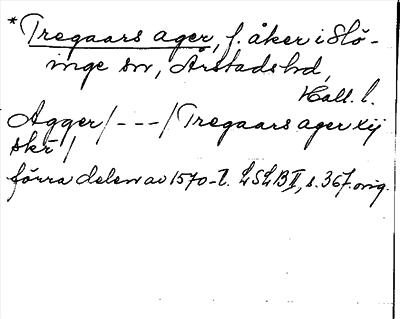 *Tregaars ager, f. åker i Slö-
inge sn, Årstads hd,
Hall. l.
Agger / - - - / Tregaars ager xij
skr /
förra delen av 1570-t. LSLB II, s. 367. orig.